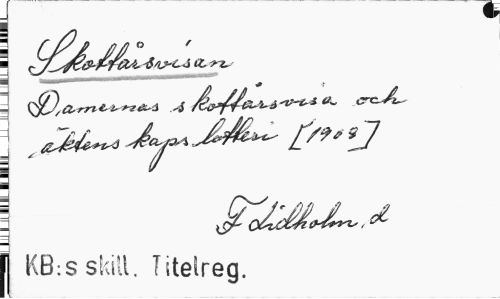 Skottårsvisan
Damernas skottårsvisa och
äktenskapslotteri [1908]
F Lidholm, d
KB:s skill. Titelreg.